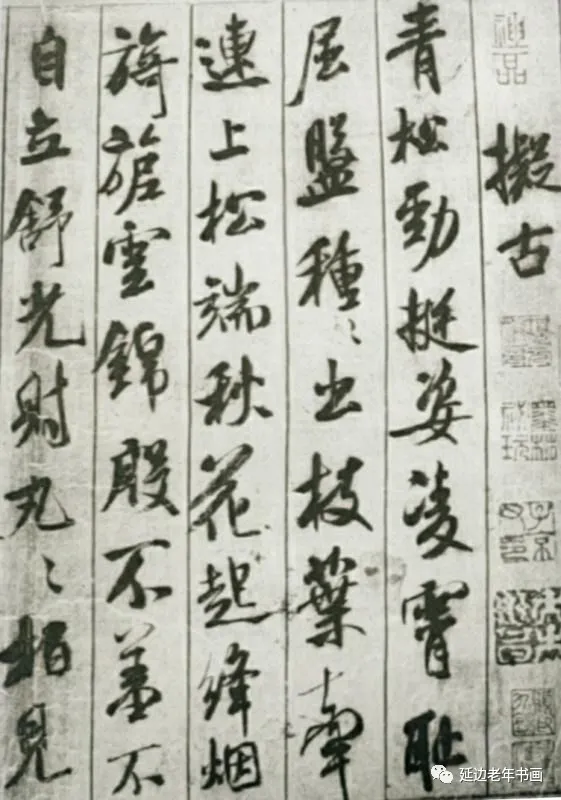 神品
擬古
青松勁挺姿凌霄耻
屈盤種〻出枝葉牽
連上松端秋花起絳烟
旖旎雲錦殷不羞不
自立舒光射丸〻柏見
延边老年书画